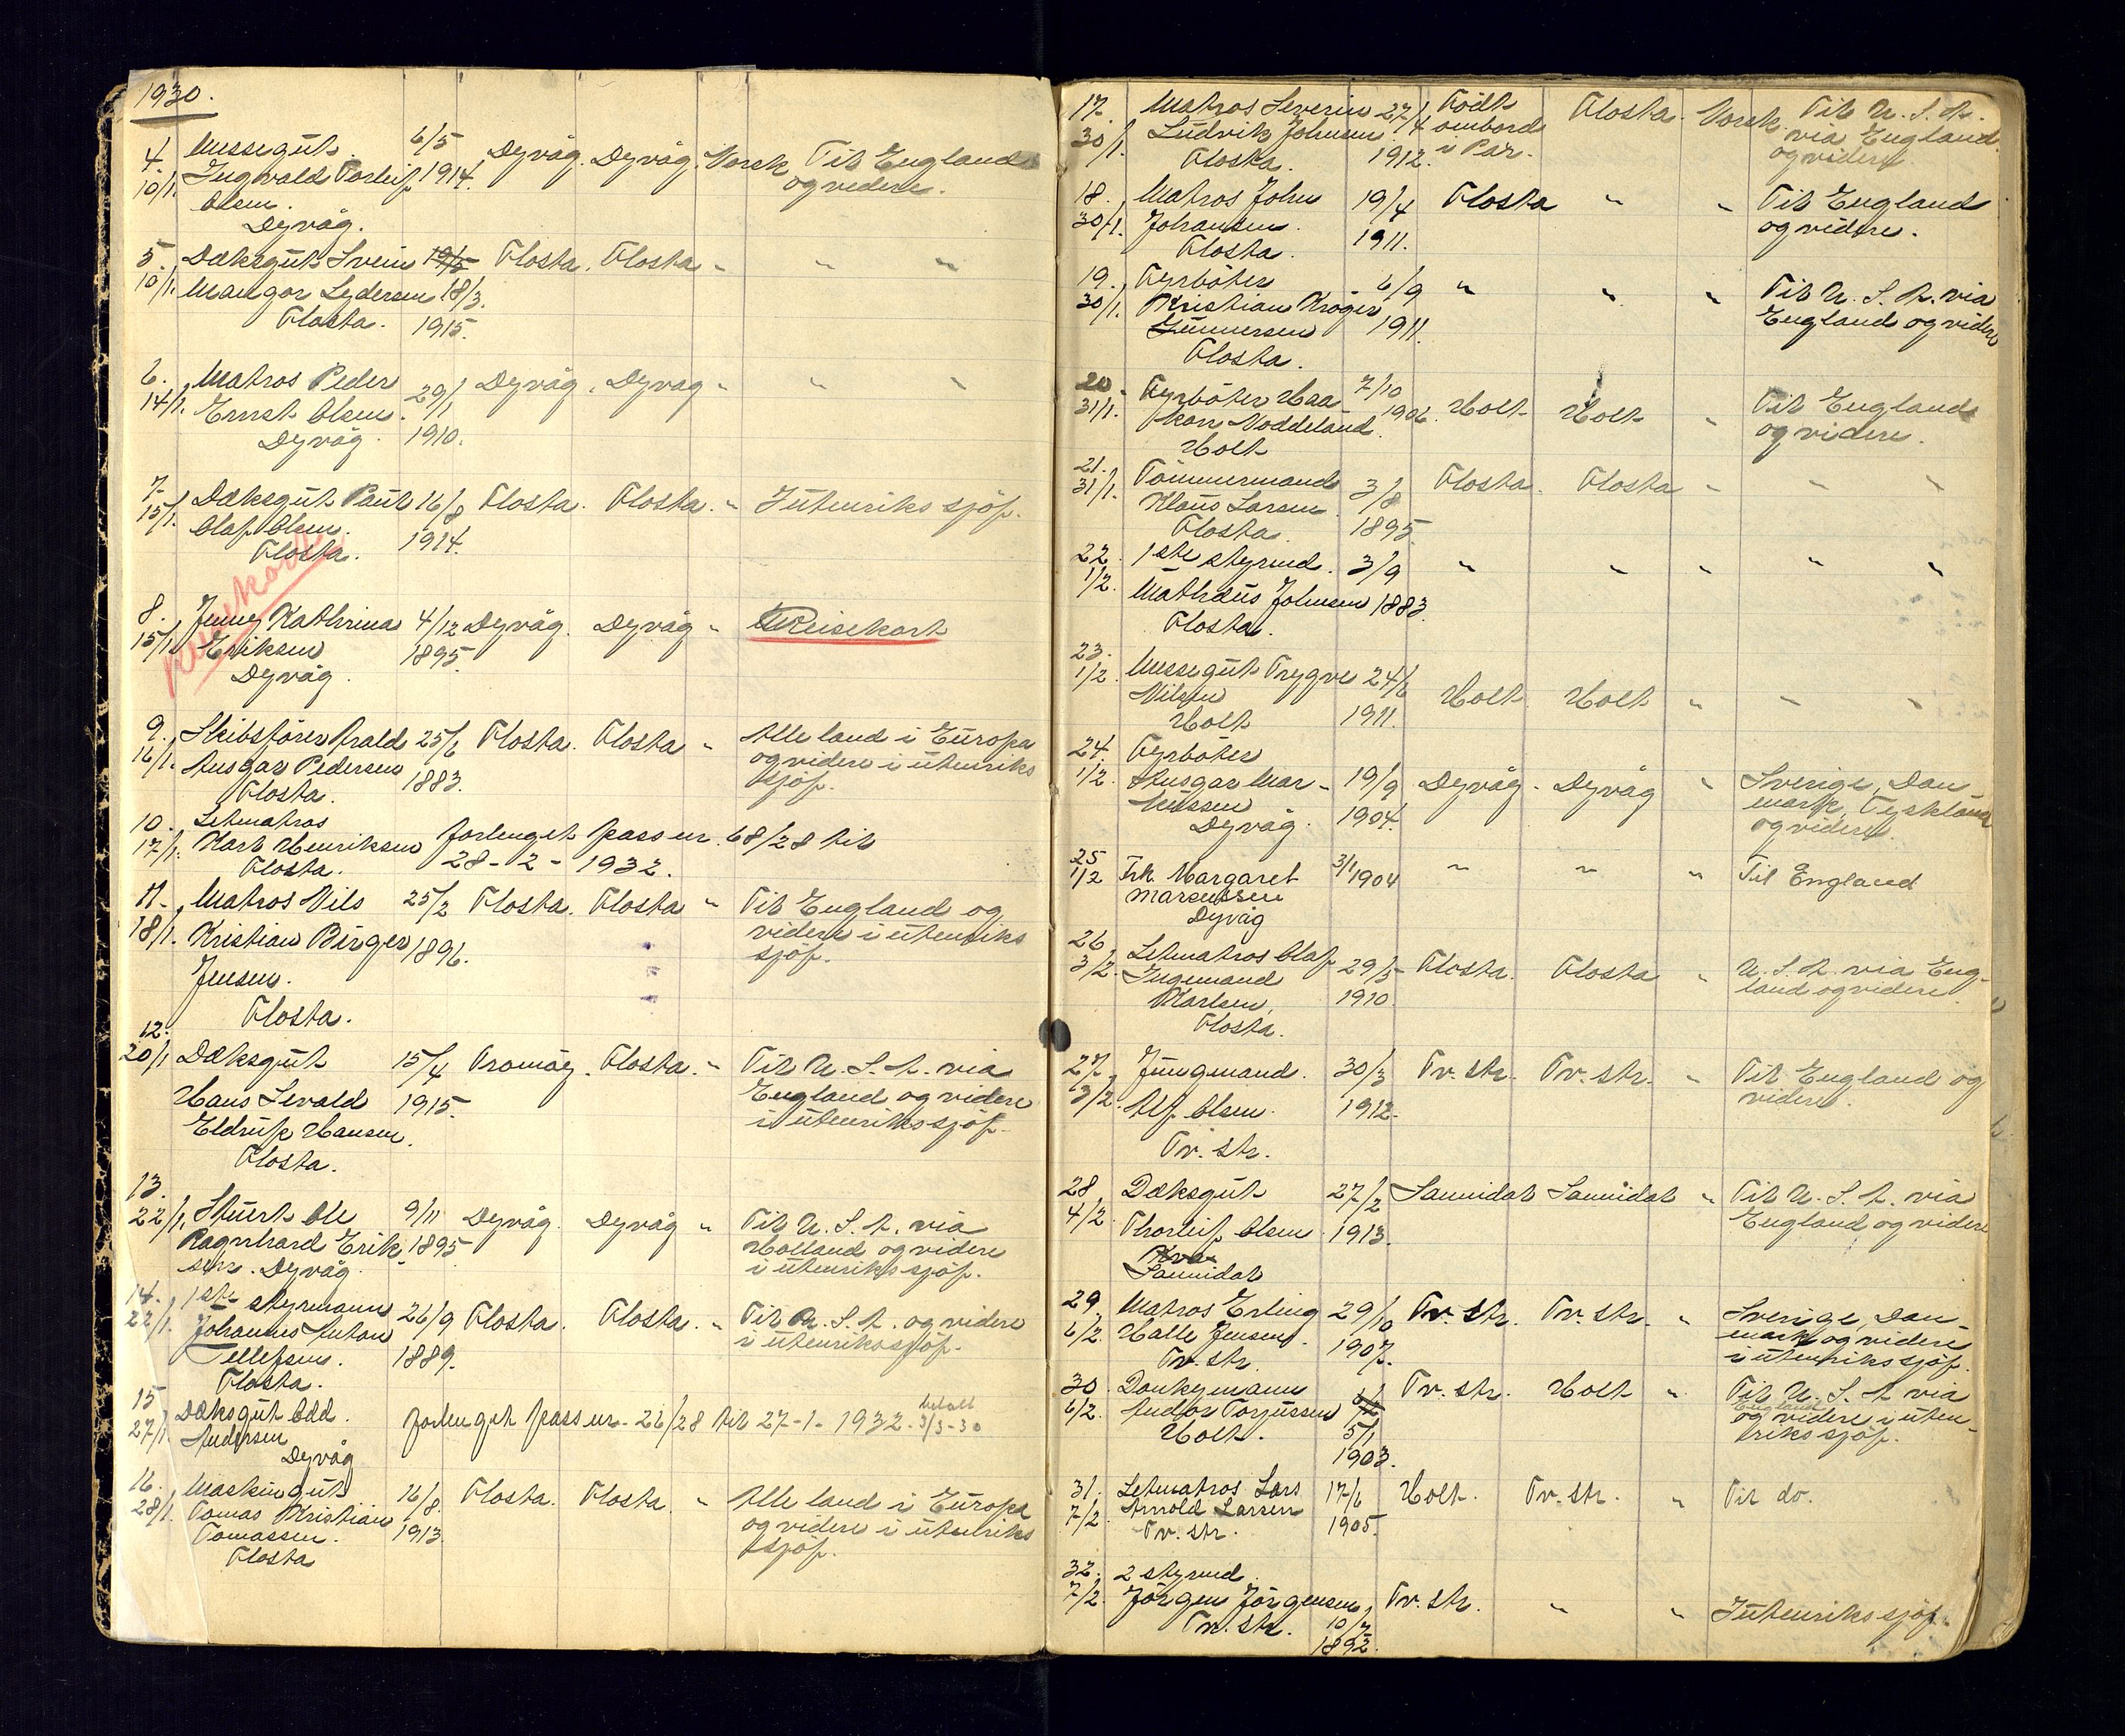 1930.
4. Messegut 6/5 Dyvåg. Dyvåg. Norsk Til England
10/1. Ingvald Torleif 1914. og videre.
Olsen.
Dyvåg.
5. Dæksgut Svein 19/5 Flosta. Flosta. " " "
10/1. Mangor Sydersen 18/3.
Flosta. 1915.
6. Matros Peder 29/1 Dyvåg. Dyvåg " " "
14/1. Ernst Olsen.
Dyvåg. 1910.
7. Dæksgut Paul 16/8 Flosta. Flosta. " I utenriks sjöf.
15/1. Olaf Olsen. 1914.
Flosta.
Reisekort
8. Jenny Kathrina 4/12 Dyvåg. Dyvåg " Reisekort
15/1. Eriksen 1895.
Dyvåg.
9. Skibsförer Arald 25/6 Flosta. Flosta " Alle land i Europa
16/1. Ansgar Pedersen 1883. og videre i utenriks
Flosta. sjöf.
10. Letmatros
17/1. Karl Henriksen forlenget pass nr. 68/28 til
Flosta. 28-2-1932.
11. Matros Nils 25/2 Flosta. Flosta " Til England og
18/1. Kristian Birger 1896. videre i utenriks
Jensen. sjöf.
Flosta.
12.
20/1 Dæksgut 15/4 Tromöy. Flosta. " Til U.S.A. via
Hans Sevald 1915. England og videre
Eldrup Hansen. i utenriks sjöf.
Flosta.
13.
22/1. Stuert Ole 9/11 Dyvåg. Dyvåg " Til U.S.A. via
Ragnhard Erik- 1895. Holland og videre
sen. Dyvåg. i utenriks sjöf.
14. 1ste styrmann 26/9 Flosta. Flosta. " Til U.S.A. og videre
22/1. Johannes Anton i utenrikssjöf.
Tellefsen. 1889.
Flosta.
15 Dæksgut Odd. forlenget pass nr. 26/28 til 27-1-1932. betalt 3/3-30
27/1. Andersen
Dyvåg
16. Maskingut 16/8. Flosta. Flosta " Alle land i Europa
28/1. Tomas Kristian 1913. og videre i utenriks
Tomassen. sjöf.
Flosta
17. Matros Severin 27/4 Födt Flosta. Norsk. Til U.S.A.
30/1. Ludvik Johnsen 1912. ombord via England
Flosta. i Par. og videre.
18. Matros John 19/4 Flosta " " Til England
30/1. Johansen. 1911. og videre.
Flosta.
19. Fyrböter 6/9 " " " Til U.S.A. via
30/1. Kristian Kröger 1911. England og videre
Gunnersen
Flosta.
20. Fyrböter Haa- 7/10 Holt Holt " Til England
31/1. kon Noddeland. 1906. og videre.
Holt
21. Tömmermand 3/8 Flosta. Flosta " " "
31/1. Klaus Larsen 1895.
Flosta.
22. 1ste styrmd. 3/9 " " " " "
1/2. Mathæus Johnsen 1883.
Flosta.
23.
1/2. Messegut Trygve 24/6 Holt. Holt " " "
Nilsen 1911.
Holt
24. Fyrböter
1/2. Ansgar Mar- 19/9 Dyvåg. Dyvåg " Sverige, Dan-
kussen 1904. mark, Tyskland
Dyvåg. og videre.
25
1/2 Frk. Margaret 3/1 1904 " " " Til England
Marcussen
Dyvåg
26 Letmatros Olaf 29/5 Flosta. Flosta " U.S.A. via Eng-
3/2. Ingemand 1910 land og videre.
Karlsen.
Flosta.
27. Jungmand. 30/3 Tv. str. Tv. str. " Til England og
3/2. Alf Olsen. 1912. videre.
Tv. str.
28. Dæksgut 27/2 Sannidal Sannidal " Til U.S.A. via
4/2. Thorleif Olsen 1913. England og videre
Sannidal
29. Matros Erling 29/10 Tv. str. Tv. str. " Sverige, Dan-
6/2. Halle Jensen. 1907. mark og videre
Tv. str. i utenrikssjöf.
30. Donkymann Tv. str. Holt " Til U.S.A via
6/2. Andor Torjussen 5/1 England
Holt. 1903. og videre i uten-
rikssjöf.
31. Letmatros Lars 17/6 Holt. Tv. str. " Til do.
7/2. Arnold Larsen 1905.
Tv. str.
32. 2 styrmd.
7/2. Jörgen Jörgensen, Tv. str. " " I utenriks sjöf.
Tv. str. 10/7
1892.